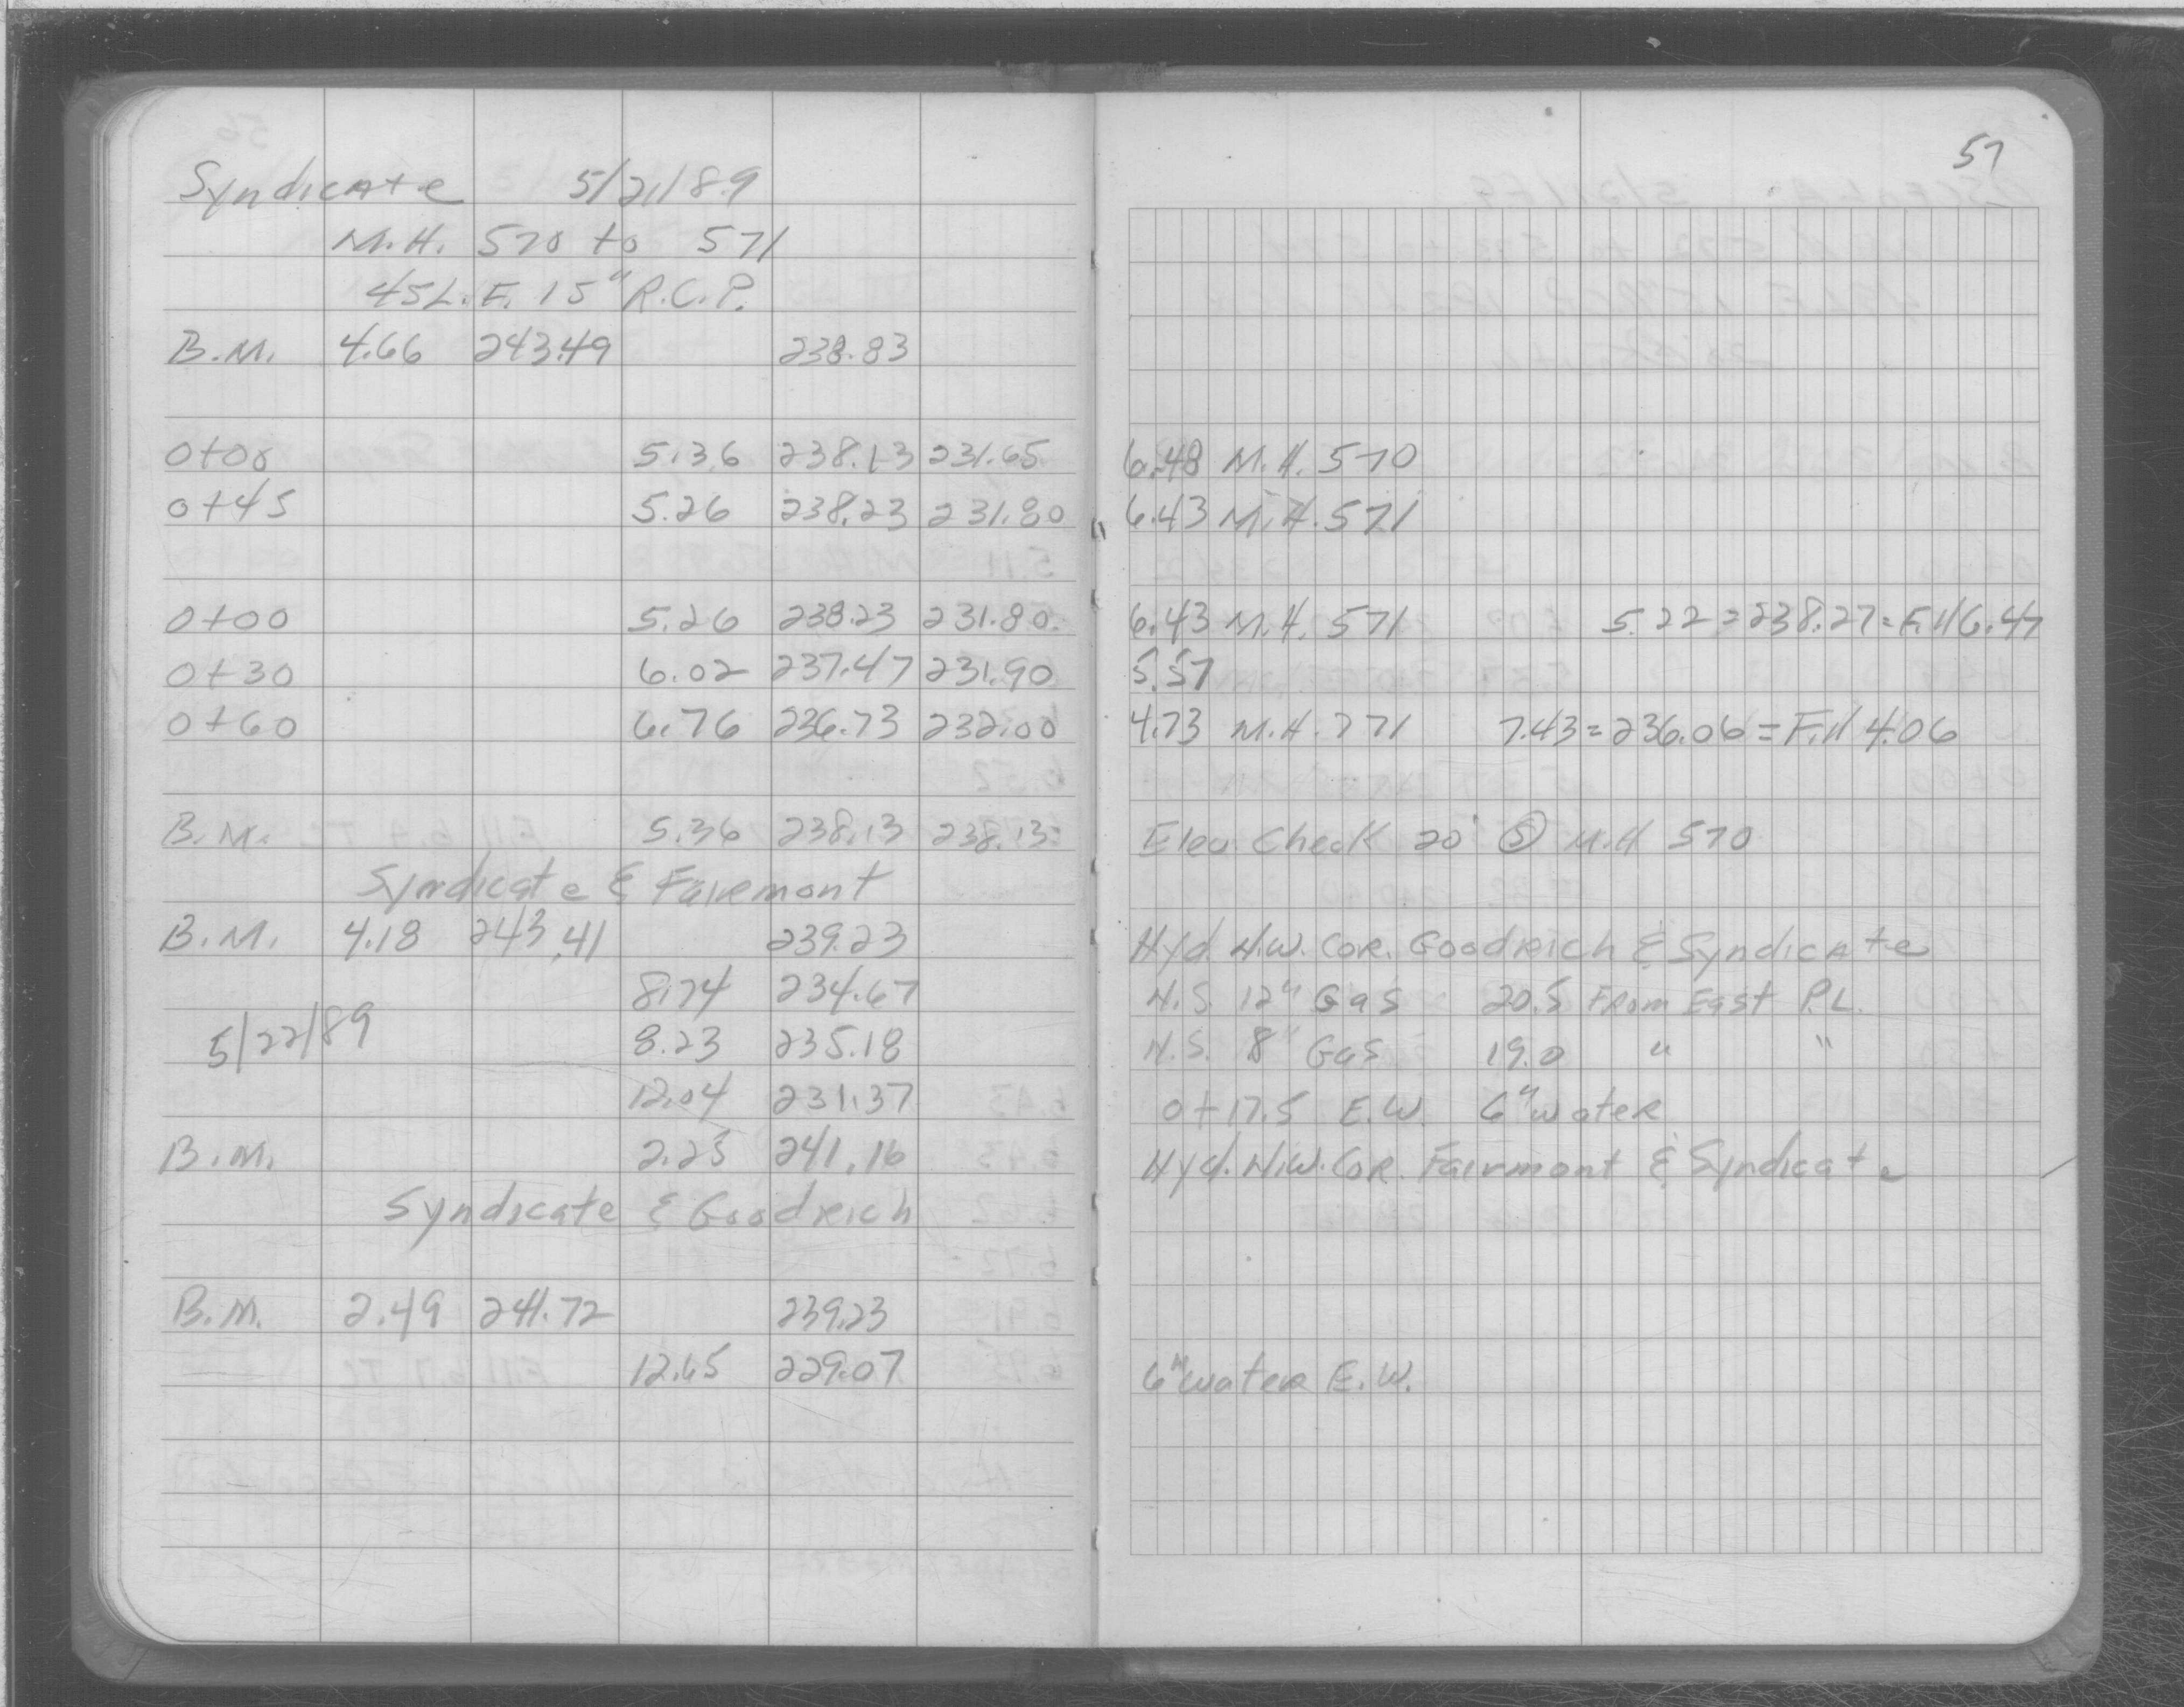 57
Syndicate 5/21/89
M.H. 570 to 571
45 L.F. 15" R.C.P.
B.M. 4.66 243.49 238.83
0+00 5.36 238.13 231.65 6.48 M.H. 570
0+45 5.26 238.23 231.80 6.43 M.H. 571
0+00 5.26 238.23 231.80 6.43 M.H. 571 5.22=238.27=Fill 6.47
0+30 6.02 237.47 231.90 5.57
0+60 6.76 236.73 232.00 4.73 M.H. 771 7.43=236.06=Fill 4.06
B.M. 5.36 238.13 238.13 Elev. Check 20' Ⓢ M.H 570
Syndicate & Fairmont
B.M. 4.18 243.41 239.23 Hyd. N.W. Cor. Goodrich & Syndicate
8.74 234.67 N.S. 12" Gas 20.5 From East P.L.
5/22/89 8.23 235.18 N.S. 8" Gas 19.0 " "
12.04 231.37 0+17.5 E.W. 6" water
B.M. 2.25 241.16 Hyd. N.W. Cor. Fairmont & Syndicate
Syndicate & Goodrich
B.M. 2.49 241.72 239.23
12.65 229.07 6" water E.W.